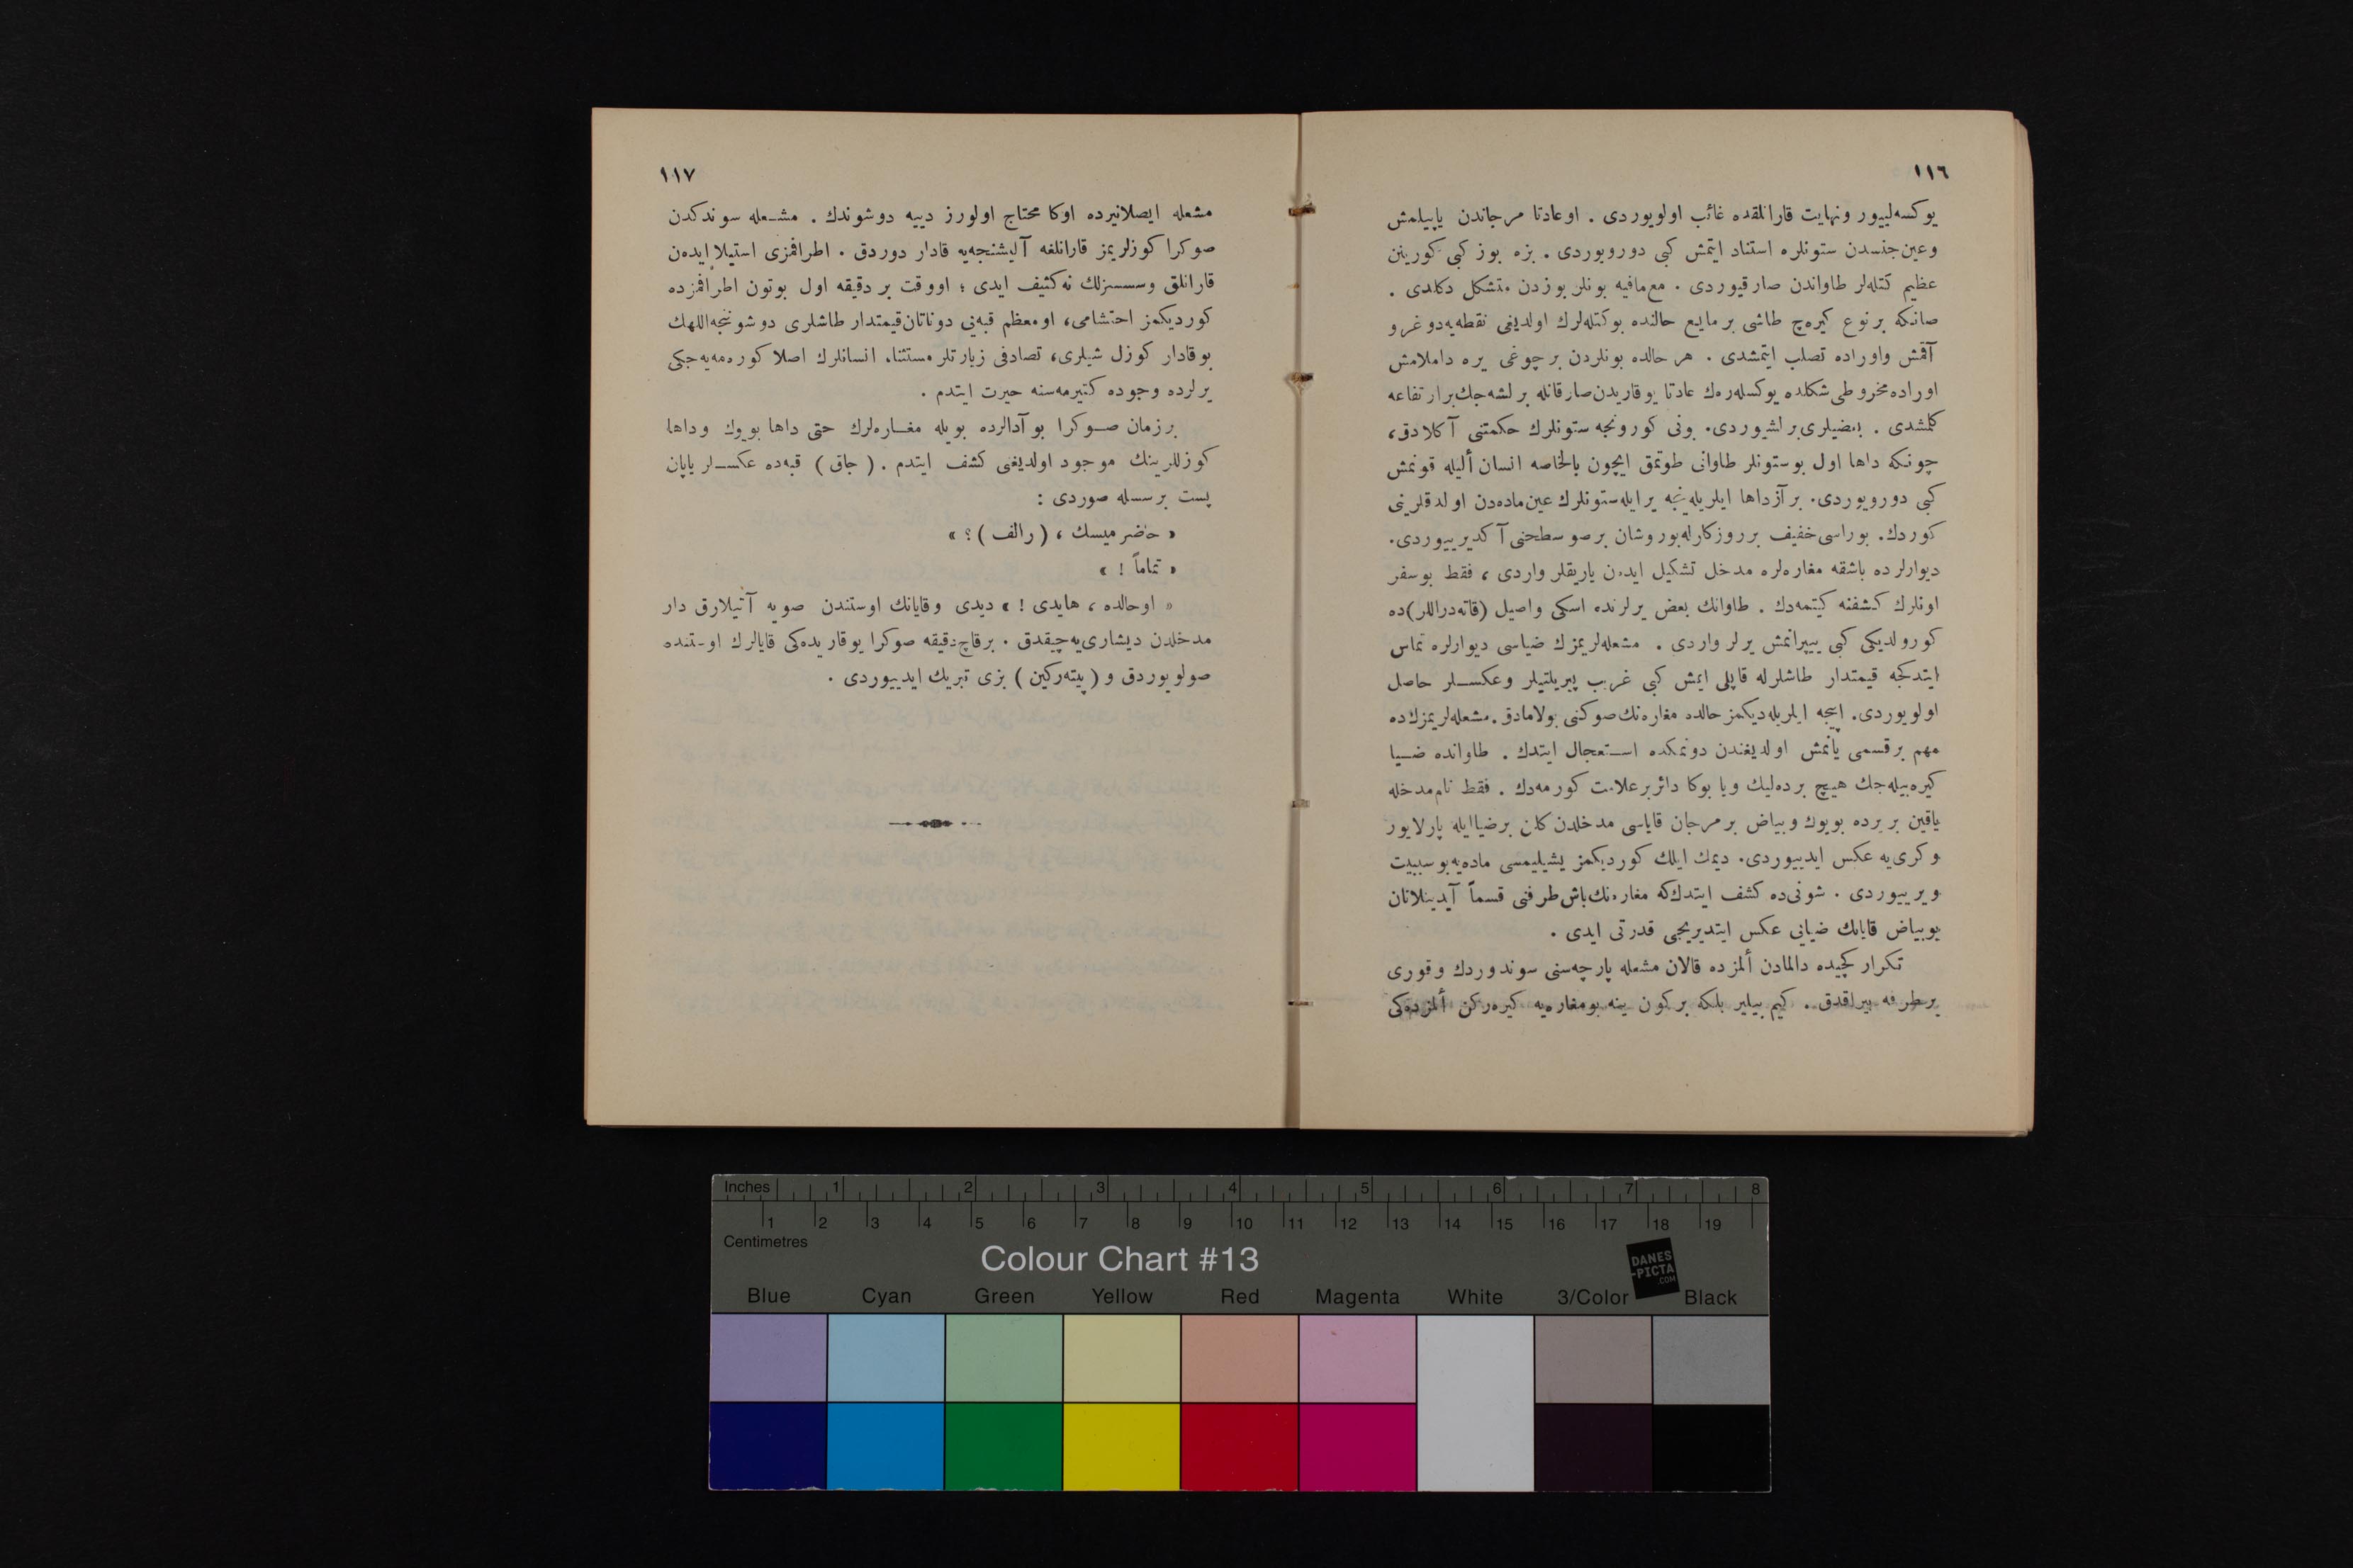 ١١٦
يوكسه‌لييور ونهايت قارانلقده غائب اولويوردى . اوعادتا مرجاندن ياپيلمش
وعين جنسدن ستونلره استناد ايتمش كبى دورويوردى . بزه بوز كبى كورينن
عظيم كتله‌لر طاواندن صارقيوردى . مع‌مافيه بونلر بوزدن متشكل دكلدى .
صانكه بر نوع كيره‌چ طاشى بر مايع حالنده بوكتله‌لرك اولديغى نقطه‌يه‌دوغرو
آقمش واوراده تصلب ايتمشدى . هر حالده بونلردن بر چوغى يره داملامش
اوراده مخروطى شكلده يوكسله‌رەك عادتا يوقاريدن صارقانله برلشه‌جك برارتفاعه
كلمشدى . بعضيلرى برلشيوردى. بونى كورونجه ستونلرك حكمتنى آكلادق،
چونكه داها اول بوستونلر طاوانى طوتمق ايچون بالخاصه انسان أليله قونمش
كبى دورويوردى. بر آز داها ايلريله‌ينجه يرايله‌ستونلرك عين ماده‌دن اولدقلرينى
كوردك. بوراسى خفيف برروزكارله‌بوروشان برصو سطحنى آكديرييوردى.
ديوارلرده باشقه مغاره‌لره مدخل تشكيل ايدن ياريقلر واردى ، فقط بوسفر
اونلرك كشفنه كيتمه‌دك . طاوانك بعض يرلرنده اسكى واصيل (قاته‌دراللر)ده
كورولديكى كبى ييپرانمش يرلر واردى . مشعله‌لريمزك ضياسى ديوارلره تماس
ايتدكجه قيمتدار طاشلرله قاپلى ايمش كبى غريب پيريلتيلر وعكسلر حاصل
اولويوردى. اييجه ايلريله‌ديكمز حالده مغاره‌نك صوكنى بولامادق. مشعله‌لريمزك‌ده
مهم بر قسمى يانمش اولديغندن دونمكده استعجال ايتدك . طاوانده ضيا
كيره‌بيله‌جك هيچ برده‌ليك ويا بوكا دائر برعلامت كورمه‌دك . فقط تام مدخله
ياقين بر يرده بويوك وبياض بر مرجان قاياسى مدخلدن كلن برضياايله پارلايور
وكرى‌يه عكس ايدييوردى. ديمك ايلك كورديكمز يشيليمسى ماده‌يه‌بوسببيت
ويرييوردى . شونى‌ده كشف ايتدك‌كه مغاره‌نك باش طرفنى قسماً آيدينلاتان
بوبياض قايانك ضيايى عكس ايتديريجى قدرتى ايدى .
تكرار كچيده دالمادن ألمزده قالان مشعله پارچه‌سنى سوندوردك وقورى
برطرفه بيراقدق . كيم بيلير بلكه بركون ينه بومغاره‌يه كيره‌ركن ألمزده‌كى
١١٧
مشعله ايصلانيرده اوكا محتاج اولورز دييه دوشوندك . مشعله سوندكدن
صوكرا كوزلريمز قارانلغه آليشنجه‌يه قادار دوردق . اطرافمزى استيلا ايده‌ن
قارانلق وسسسزلك نه‌كثيف ايدى ؛ اووقت بر دقيقه اول بوتون اطرافمزده
كورديكمز احتشامى، اومعظم قبه‌يى دوناتان قيمتدار طاشلرى دوشوننجه‌اللهك
بوقادار كوزل شيلرى، تصادفى زيارتلر مستثنا، انسانلرك اصلا كوره‌مه‌يه‌جكى
يرلرده وجوده كتيرمه‌سنه حيرت ايتدم .
بر زمان صوكرا بوآدالرده بويله مغاره‌لرك حتى داها بويوك وداها
كوزللرينك موجود اولديغنى كشف ايتدم . ( جاق ) قبه‌ده عكسلر ياپان
پست برسسله صوردى :
« حاضرميسك ، ( رالف ) ؟ »
« تماماً ! »
« اوحالده ، هايدى ! » ديدى وقايانك اوستندن صويه آتيلارق دار
مدخلدن ديشارى‌يه‌چيقدق . برقاچ دقيقه صوكرا يوقاريده‌كى قايالرك اوستنده
صولويوردق و ( پيته‌ركين ) بزى تبريك ايدييوردى .
Inches 1 2 3 4 5 6 7 8
1 2 3 4 5 6 7 8 9 10 11 12 13 14 15 16 17 18 19
Centimetres
Colour Chart #13
DANES
-PICTA
.COM
Blue Cyan Green Yellow Red Magenta White 3/Color Black